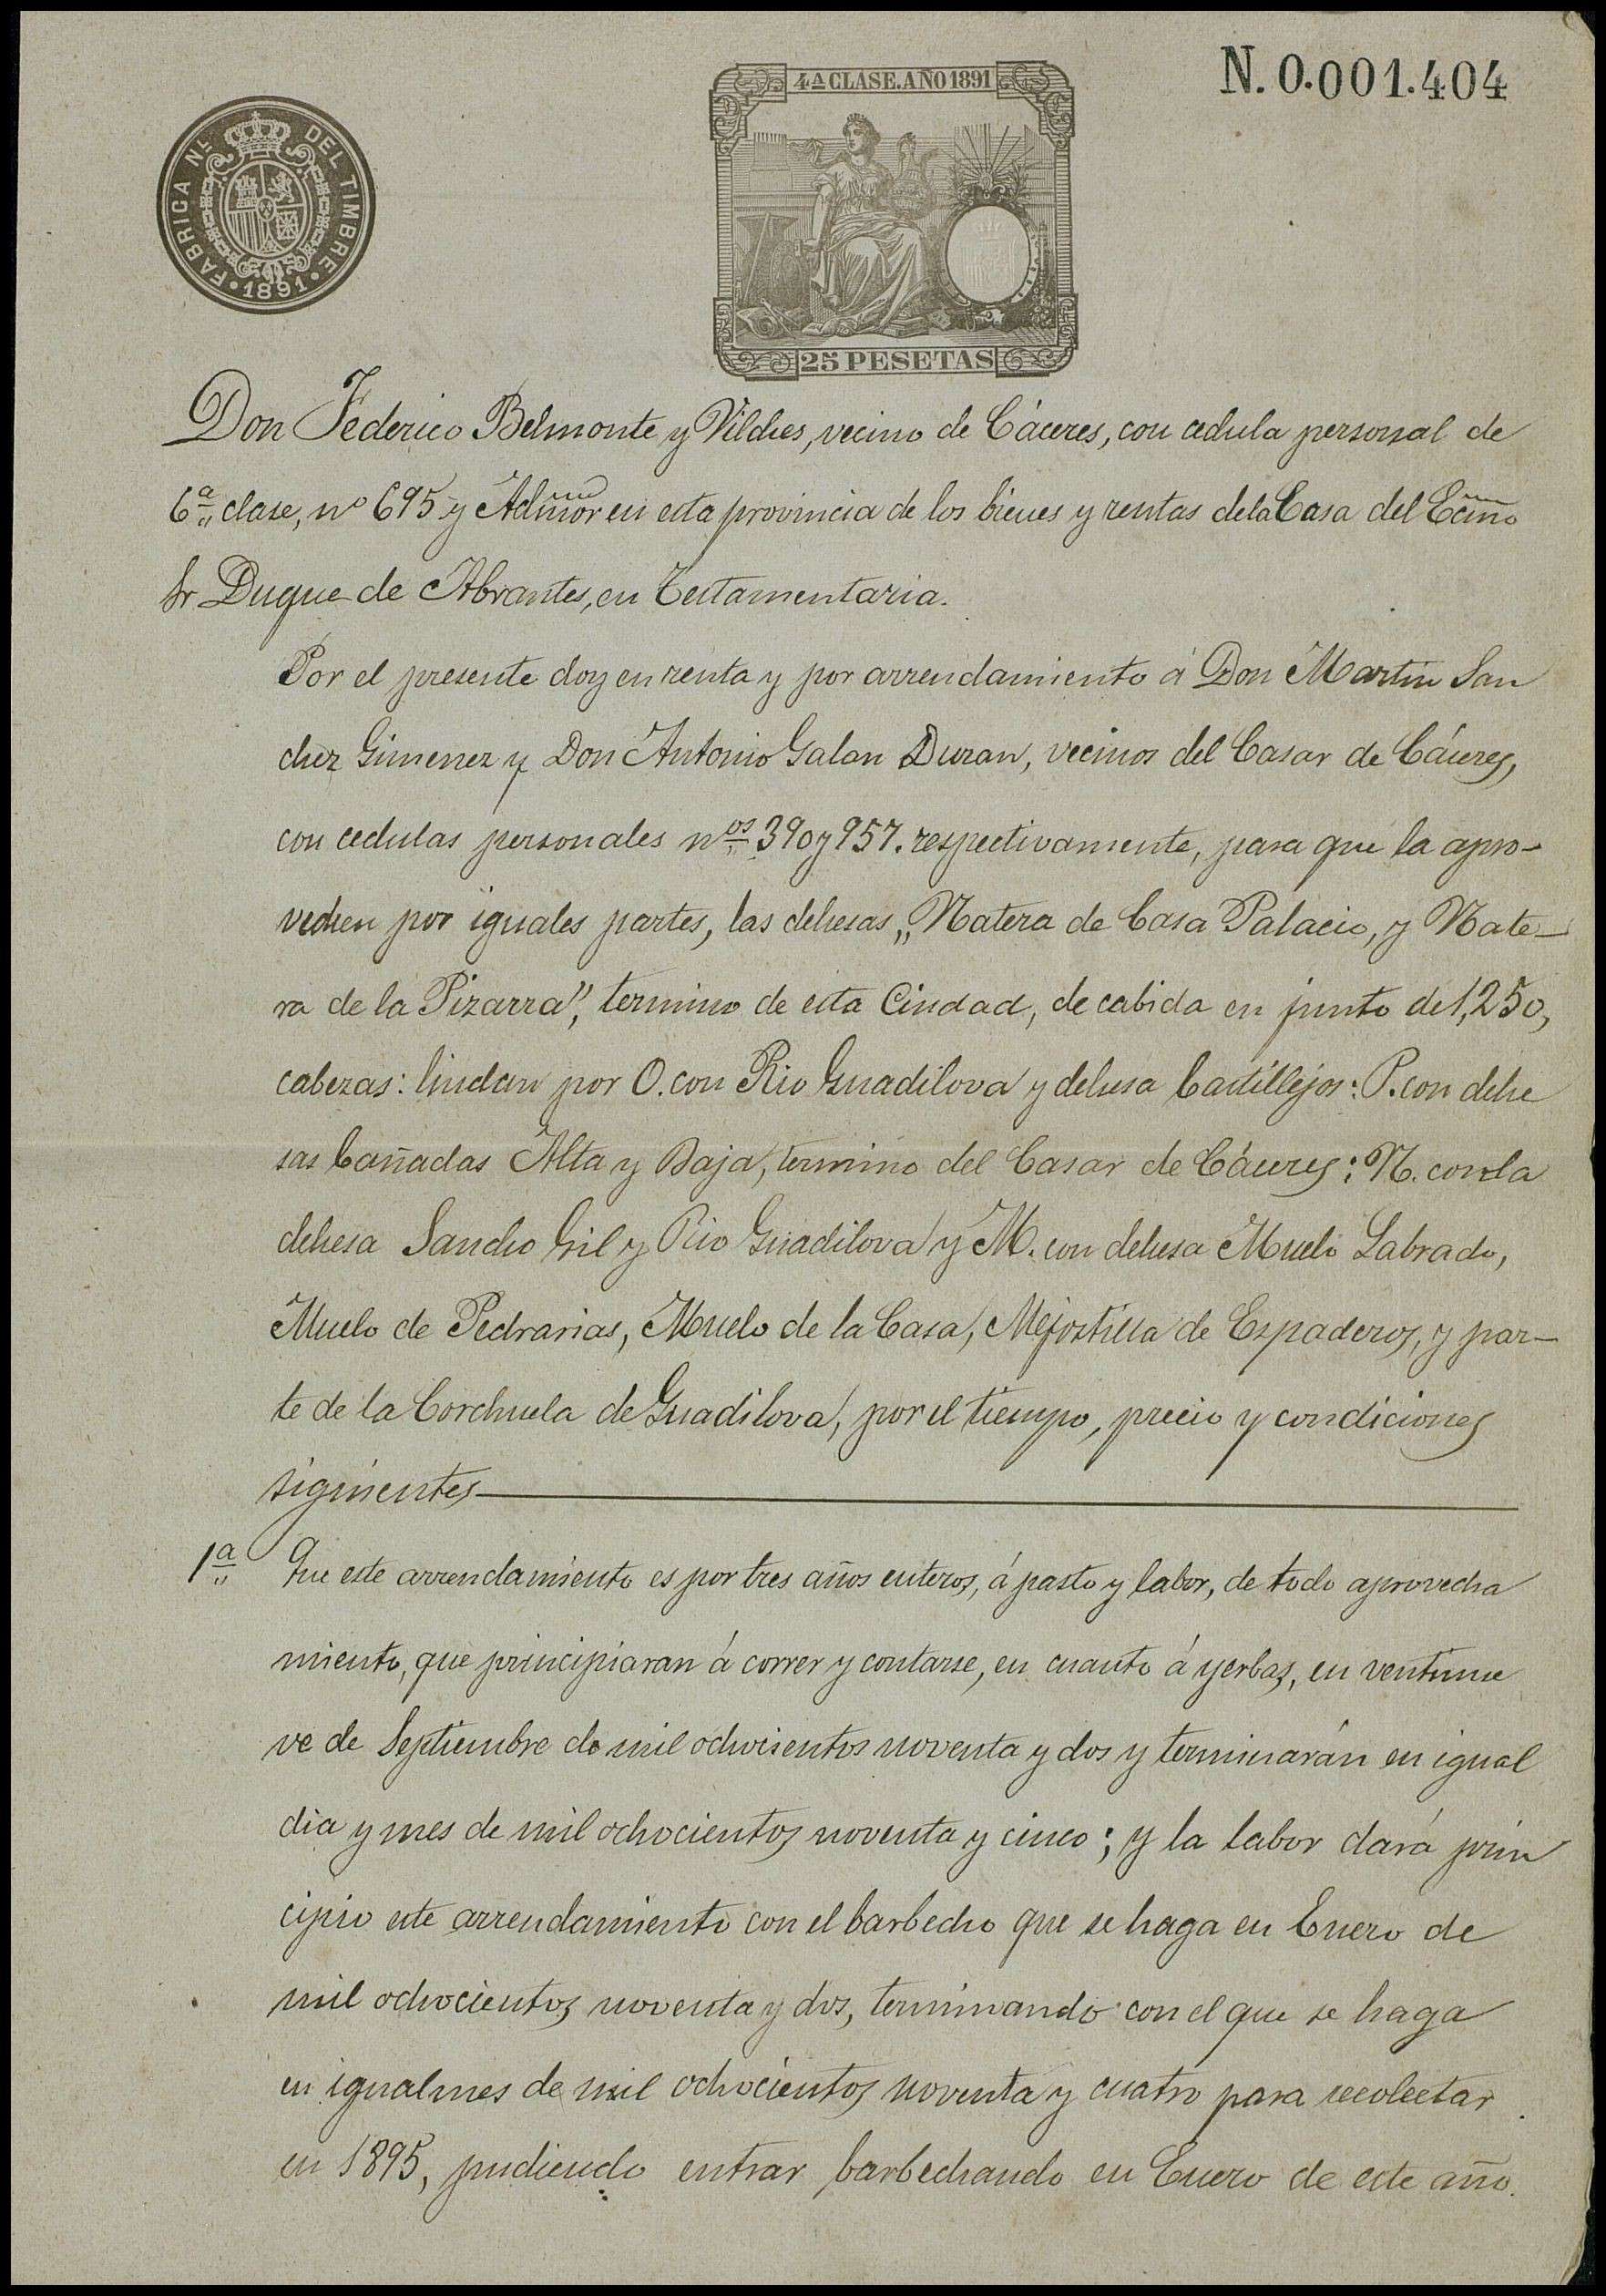 N. 0.001.404
4ª CLASE. AÑO 1891
FABRICA Nˡ DEL TIMBRE · 1891 ·
25 PESETAS
Don Federico Belmonte y Vilches, vecino de Cáceres, con cedula personal de
6ª clase, nº 695 y Admor en esta provincia de los bienes y rentas dela Casa del Ecmo
Sr Duque de Abrantes, en Testamentaria.
Por el presente doy en renta y por arrendamiento á Don Martin San
chez Gimenez y Don Antonio Galan Duran, vecinos del Casar de Cáceres,
con cedulas personales nos 390 y 957. respectivamente, para que la apro-
vechen por iguales partes, las dehesas „Natera de Casa Palacio, y Nate-
ra de la Pizarra", termino de esta Ciudad, de cabida en junto de 1,250,
cabezas: lindan por O. con Rio Guadilova y dehesa Castillejos: P. con dehe
sas Cañadas Alta y Baja, termino del Casar de Cáceres: N. con la
dehesa Sancho Gil y Rio Guadilova y M. con dehesa Muelo Labrado,
Muelo de Pedrarias, Muelo de la Casa, Mejostilla de Espaderos, y par-
te de la Corchuela de Guadilova, por el tiempo, precio y condiciones
siguientes
1ª Que este arrendamiento es por tres años enteros, á pasto y labor, de todo aprovecha
miento, que principiaran á correr y contarse, en cuanto á yerbas, en ventinue
ve de Septiembre de mil ochocientos noventa y dos y terminarán en igual
dia y mes de mil ochocientos noventa y cinco; y la labor dará prin
cipio este arrendamiento con el barbecho que se haga en Enero de
mil ochocientos noventa y dos, terminando con el que se haga
en igual mes de mil ochocientos noventa y cuatro para recolectar
en 1895, pudiendo entrar barbechando en Enero de este año.